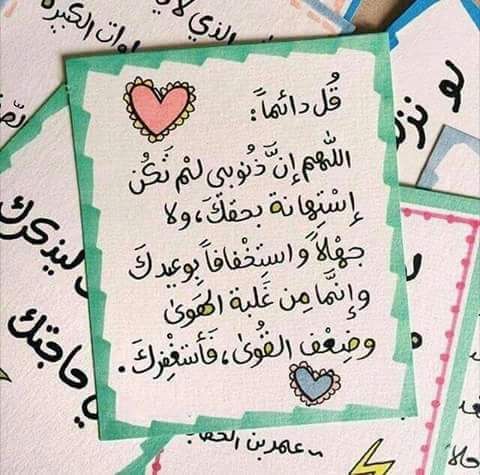 قُل دائماً:
اللهم إنَّ ذُنوبي لمْ تَكُن
إسْتِهانة بحقكَ، ولا
جهْلاً واستِخْفافاً بِوعيدكَ
وإنَّما مِن غَلبة الهَوىٰ
وضِعْف القُوىٰ، فَأستَغْفِركَ.
الذي لا
الكبيرة
لو نزلت
ليذكرك
ي حاجتك
~ عامر بن